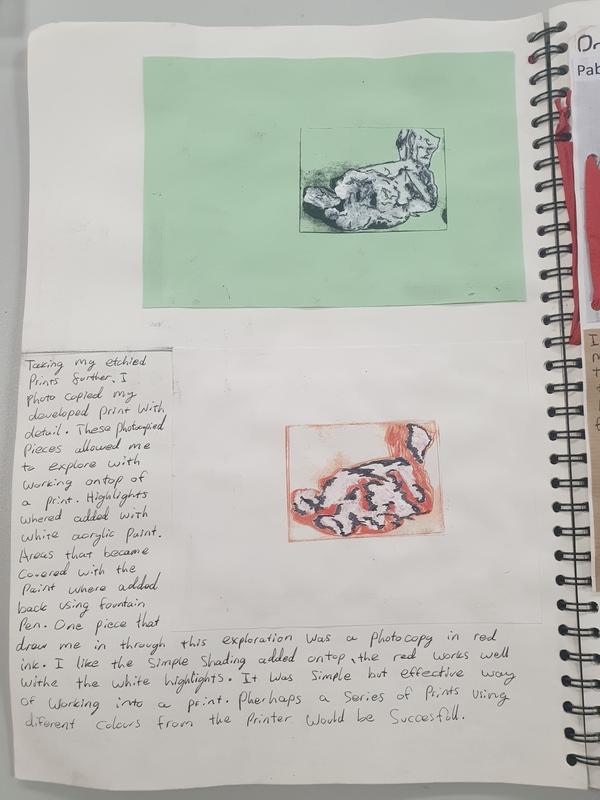 Taking my etchied
Prints further. I
photo copied my
developed print with
detail. These photocopied
pieces allowed me
to explore with
working ontop of
a print. Highlights
whered added with
white acrylic Paint.
Areas that became
covered with the
Paint where added
back using fountain
Pen. One piece that
draw me in through this exploration was a photocopy in red
ink. I like the Simple Shading added ontop, the red works well
withe the white highlights. It was simple but effective way
of working into a print. Pherhaps a Series of Prints using
diferent colours from the Printer would be Succesfull.
Pab